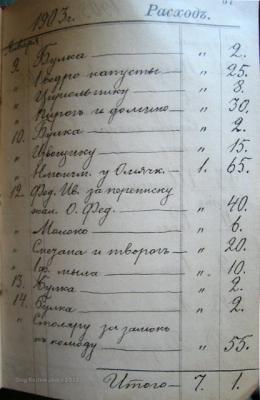 1903 г. Расходъ.
Января
9. Булка — " 2.
" 1 ведро капусты — " 25.
" Цирюльнику — " 8.
" Пирогъ и — " 30.
10. Булка — " 2.
" Извощику — " 15.
" у — 1. 65.
12. Фед. Ив. за переписку
жал. О. Фед. — " 40.
" Молоко — " 6.
" Сметана и творогъ — " 20.
" 1 ф. мыла — " 10.
13. Булка — " 2.
14. Булка — " 2.
" Столяру за замокъ
къ комоду — " 55.
Итого — 7. 1.